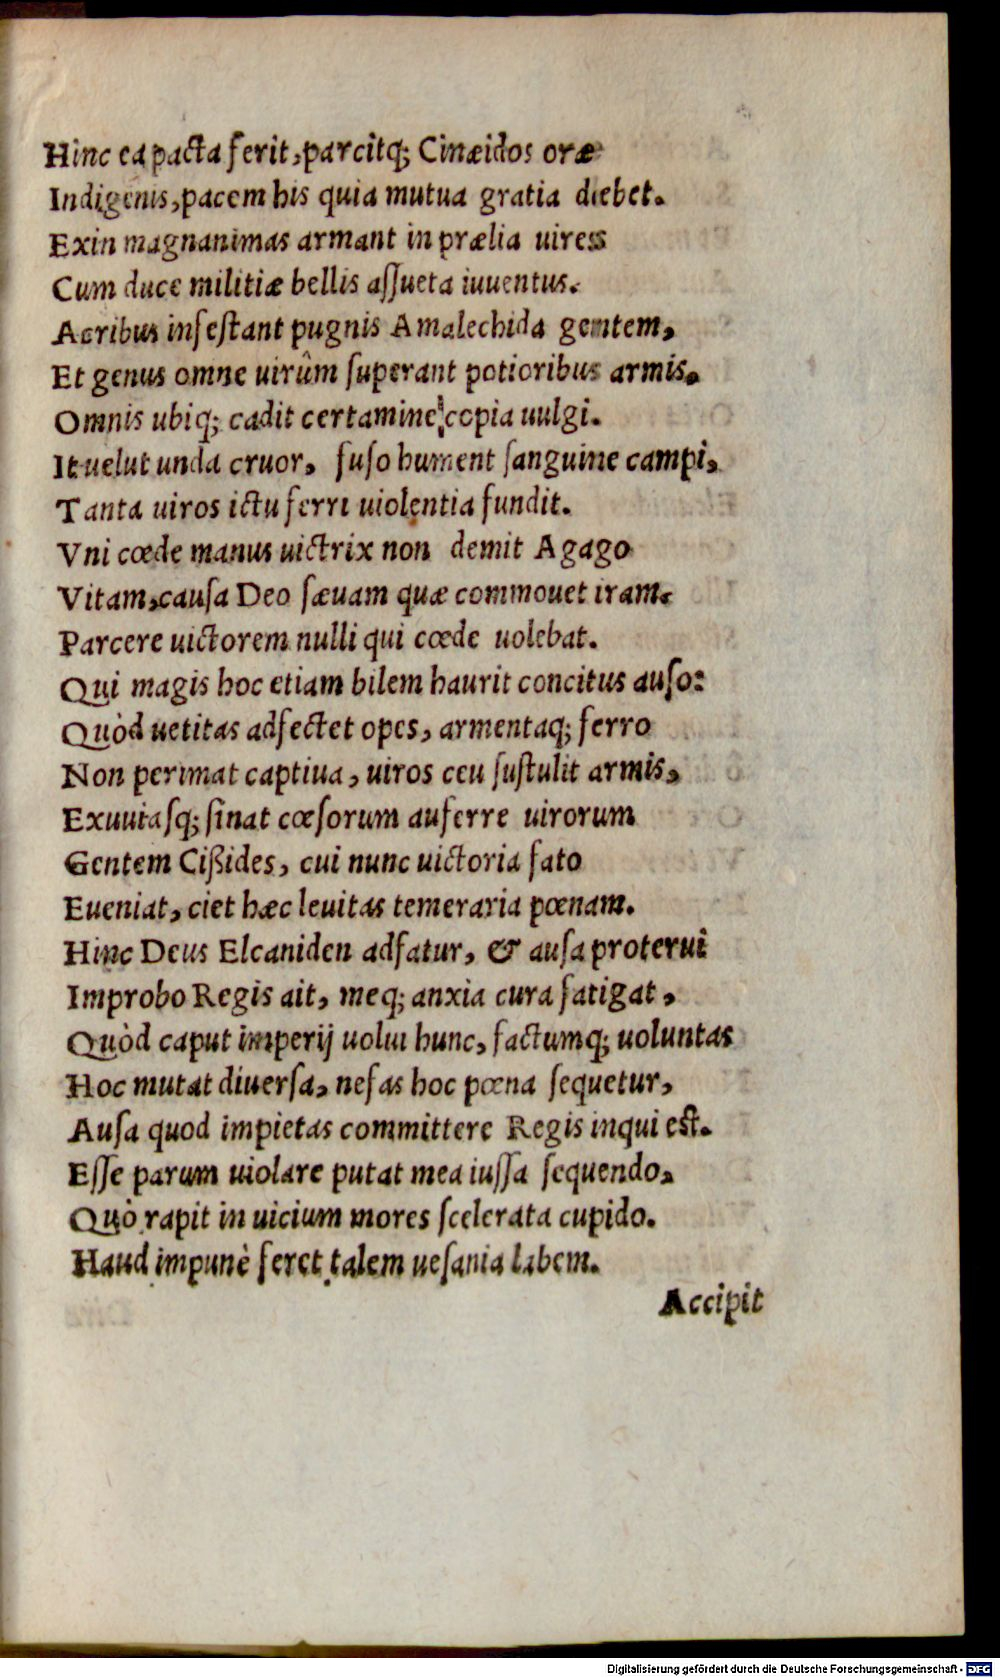 Hinc ea pacta ferit, parcitq; Cinæidos oræ
Indigenis, pacem his quia mutua gratia debet.
Exin magnanimas armant in prælia uires
Cum duce militiæ bellis aſſueta iuuentus.
Acribus infeſtant pugnis Amalechida gentem,
Et genus omne uirûm ſuperant potioribus armis.
Omnis ubiq; cadit certamine copia uulgi.
It uelut unda cruor, fuſo hument ſanguine campi,
Tanta uiros ictu ferri uiolentia fundit.
Vni cœde manus uictrix non demit Agago
Vitam, cauſa Deo ſæuam quæ commouet iram.
Parcere uictorem nulli qui cœde uolebat.
Qui magis hoc etiam bilem haurit concitus auſo:
Quòd uetitas adfectet opes, armentaq; ferro
Non perimat captiua, uiros ceu ſuſtulit armis,
Exuuiaſq; ſinat cœſorum auferre uirorum
Gentem Cißides, cui nunc uictoria fato
Eueniat, ciet hæc leuitas temeraria pœnam.
Hinc Deus Elcaniden adfatur, & auſa proterui
Improbo Regis ait, meq; anxia cura fatigat,
Quòd caput imperij uolui hunc, factumq; uoluntas
Hoc mutat diuerſa, nefas hoc pœna ſequetur,
Auſa quod impietas committere Regis inqui eſt.
Eſſe parum uiolare putat mea iuſſa ſequendo,
Quò rapit in uicium mores ſcelerata cupido.
Haud impunè feret talem ueſania labem.
Accipit
Digitalisierung gefördert durch die Deutsche Forschungsgemeinschaft - DFG